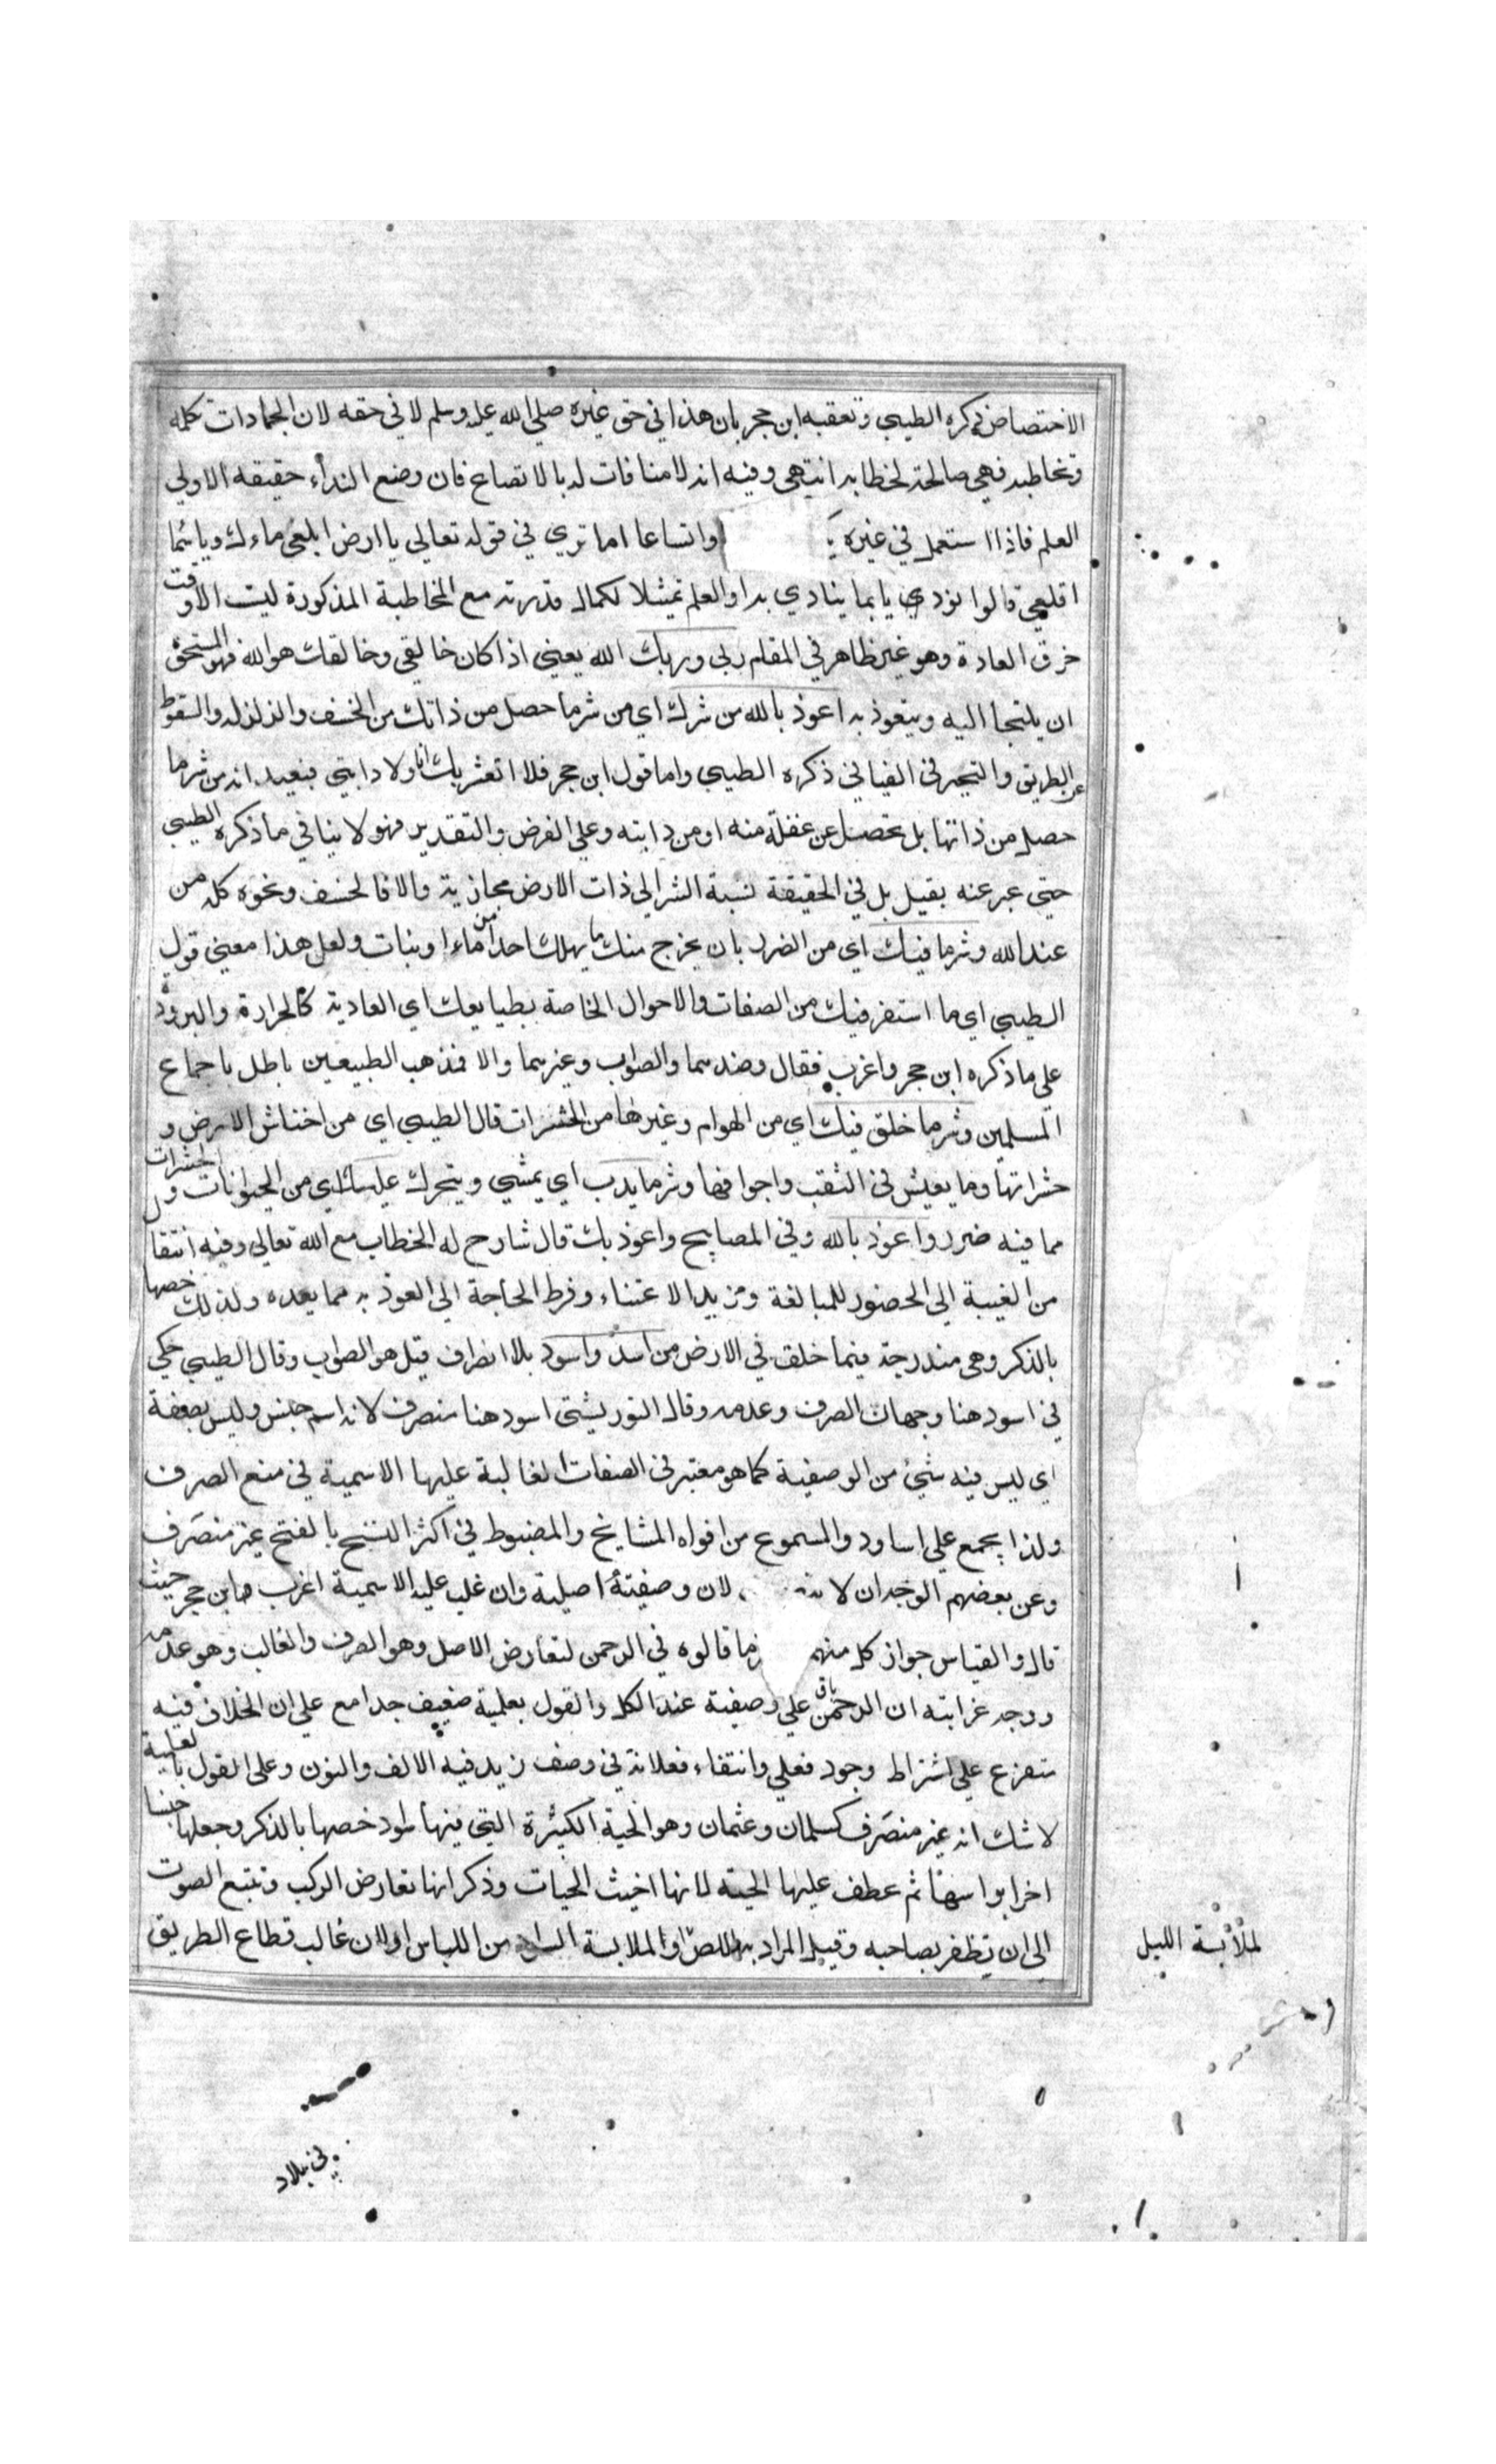 الاختصاص ذكره الطيبي وتعقبه ابن حجر بان هذا في حق غيره صلي الله عليه وسلم لا في حقه لان الجمادات تكلمه
وتخاطبه فهي صالحة لخطابه انتهي وفيه انه لا منافات له بالاتصاع فان وضع النداء حقيقه لاولي
العلم فاذا استعمل في غيره واتساعا اما تري في قوله تعالي يا ارض ابلعي ماءك ويا سما
اقلعي قالوا نودي يا بما ينادي به اولو العلم تمثيلا لكمال قدرته مع المخاطبة المذكورة ليت الا وقت
خرق العادة وهو غير ظاهر في المقام ربي وربك الله يعني اذا كان خالقي وخالقك هو الله فهو المستحق
ان يلتجا اليه ويتعوذ به اعوذ بالله من شرك اي من شر ما حصل من ذاتك من الخسف والزلزله والسقوط
عن الطريق والتحير في الفيافي ذكره الطيبي واما قول ابن حجر فلا اتعثر بك انا ولا دابتي فبعيد انه من شر ما
حصل من ذاتها بل يحصل عن غفلة منه او من دابته وعلي الفرض والتقدير فهو لا ينافي ما ذكره الطيبي
حتي عبر عنه بقيل بل في الحقيقة نسبة الشر الي ذات الارض مجازية والا فالخسف ونحوه كله من
عند الله وشر ما فيك اي من الضرر بان يخرج منك ما يهلك احدا من ماء او نبات ولعل هذا معني قول
الطيبي اي ما استقر فيك من الصفات والاحوال الخاصة بطبايعك اي العادية كالحرارة والبرودة
علي ما ذكره ابن حجر واغرب فقال وضدهما والصواب وغيرهما والا فمذهب الطبيعين باطل باجماع
المسلمين وشر ما خلق فيك اي من الهوام وغيرها من الحشرات قال الطيبي اي من اخناش الارض و
حشراتها وما يعيش في الثقب واجوافها وشر ما يدب اي يمشي ويتحرك عليك اي من الحيوانات والحشرات
مما فيه ضرر واعوذ بالله وفي المصابيح واعوذ بك قال شارح له الخطاب مع الله تعالي وفيه انتقال
من الغيبة الي الحضور للمبالغة ومزيد الاعتناء وفرط الحاجة الي العوذ به مما يعده ولذلك خصها
بالذكر وهي مندرجة فيما خلق في الارض من اسد واسود بلا انصراف قيل هو الصواب وقال الطيبي حكي
في اسود هنا وجهان الصرف وعدمه وقال التوربشتي اسود هنا منصرف لانه اسم جنس وليس بصفة
اي ليس فيه شيء من الوصفية كما هو معتبر في الصفات الغالبة عليها الاسمية في منع الصرف
ولذا يجمع علي اساود والمسموع من افواه المشايخ والمضبوط في اكثر النسخ بالفتح غير منصرف
وعن بعضهم الوجه ان لا لان وصفيته اصلية وان غلب عليه الاسمية اغرب ابن حجر حيث
قال والقياس جواز كل منهم ما قالوه في الرحمن لتعارض الاصل وهو الصرف والغالب وهو عدمه
ووجه غرابته ان الرحمن باق علي وصفية عند الكل والقول بعلمية ضعيف جدا مع علي ان الخلاف فيه
متفرع علي اشتراط وجود فعلي وانتفاء فعلانة في وصف زيد فيه الالف والنون وعلي القول بالعلمية
لا شك انه غير منصرف كسلمان وعثمان وهو الحية الكثيرة التي فيها سود خصها بالذكر وجعلها جنسا
اخر براسها ثم عطف عليها الحية لانها اخبث الحيات وذكر انها تعارض الركب وتتبع الصوت
الي ان تظفر بصاحبه وقيل المراد به اللص او الملابسة السواد من اللباس او لان غالب قطاع الطريق
لملابسة الليل
في بلاد